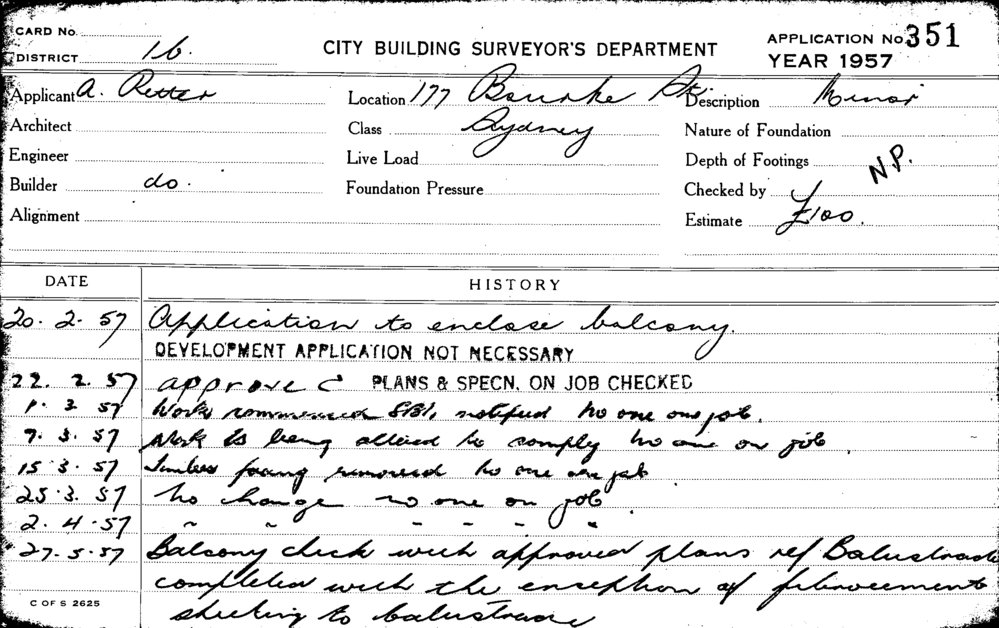 CARD No.
DISTRICT 16.
CITY BUILDING SURVEYOR'S DEPARTMENT
APPLICATION No 351
YEAR 1957
Applicant A. Retter
Location 177 Bourke St.
Description Minor
Architect
Class Sydney
Nature of Foundation
Engineer
Live Load
Depth of Footings
N.P.
Builder do.
Foundation Pressure
Checked by
Alignment
Estimate £100.
DATE
HISTORY
20. 2. 57 Application to enclose balcony.
DEVELOPMENT APPLICATION NOT NECESSARY
22. 2. 57 approved PLANS & SPECN. ON JOB CHECKED
1. 3 57 Work commenced notified no one on job.
9. 3. 57 Work is being altered to comply no one on job
15. 3. 57 facing removed no one on job
25. 3. 57 no change no one on job
2. 4. 57 " " " " " "
27. 5. 57 Balcony check with approved plans ref Balustrade
completed with the exception of fibrocement
sheeting to balustrade
C OF S 2625